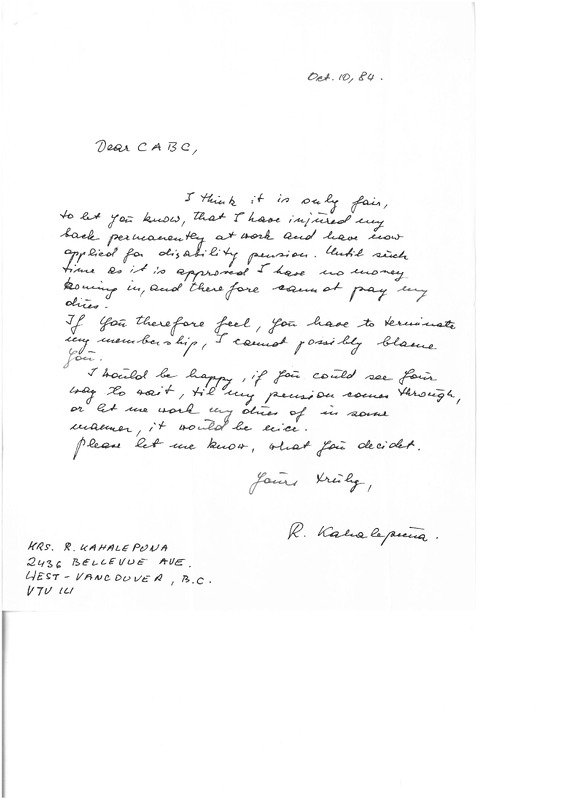 Oct. 10, 84.
Dear CABC,
I think it is only fair,
to let you know, that I have injured my
back permanently at work and have now
applied for disability pension. Until such
time as it is approved I have no money
koming in, and therefore cannot pay my
dues.
If you therefore feel, you have to terminate
my membership, I cannot possibly blame
you.
I would be happy, if you could see your
way to wait, til my pension comes through,
or let me work my dues of in some
manner, it would be nice.
please let me know, what you decidet.
Yours truly,
R. Kahalepuna.
MRS. R. KAHALEPUNA
2436 BELLEVUE AVE.
WEST-VANCOUVER, B.C.
V7V 1E1